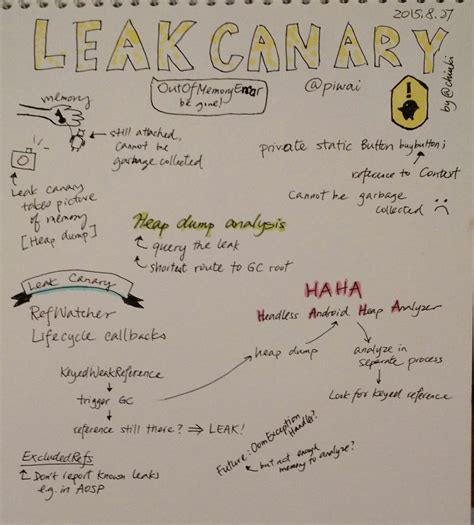 2015.8.27
LEAK CANARY
by @chiuki
OutOfMemoryError
be gone!
@piwai
!
memory
still attached,
cannot be
garbage collected
private static Button buybutton;
reference to Context
Cannot be garbage
collected :(
Leak canary
takes picture
of memory
[Heap dump]
Heap dump analysis
query the leak
shortest route to GC root
Leak Canary
RefWatcher
Lifecycle callbacks
HAHA
Headless Android Heap Analyzer
KeyedWeakReference
trigger GC
reference still there? ⇒ LEAK!
heap dump
analyze in
separate process
Look for keyed reference
ExcludedRefs
Don't report known leaks
e.g. in AOSP
Future: OomException
Handler?
but not enough
memory to analyze?